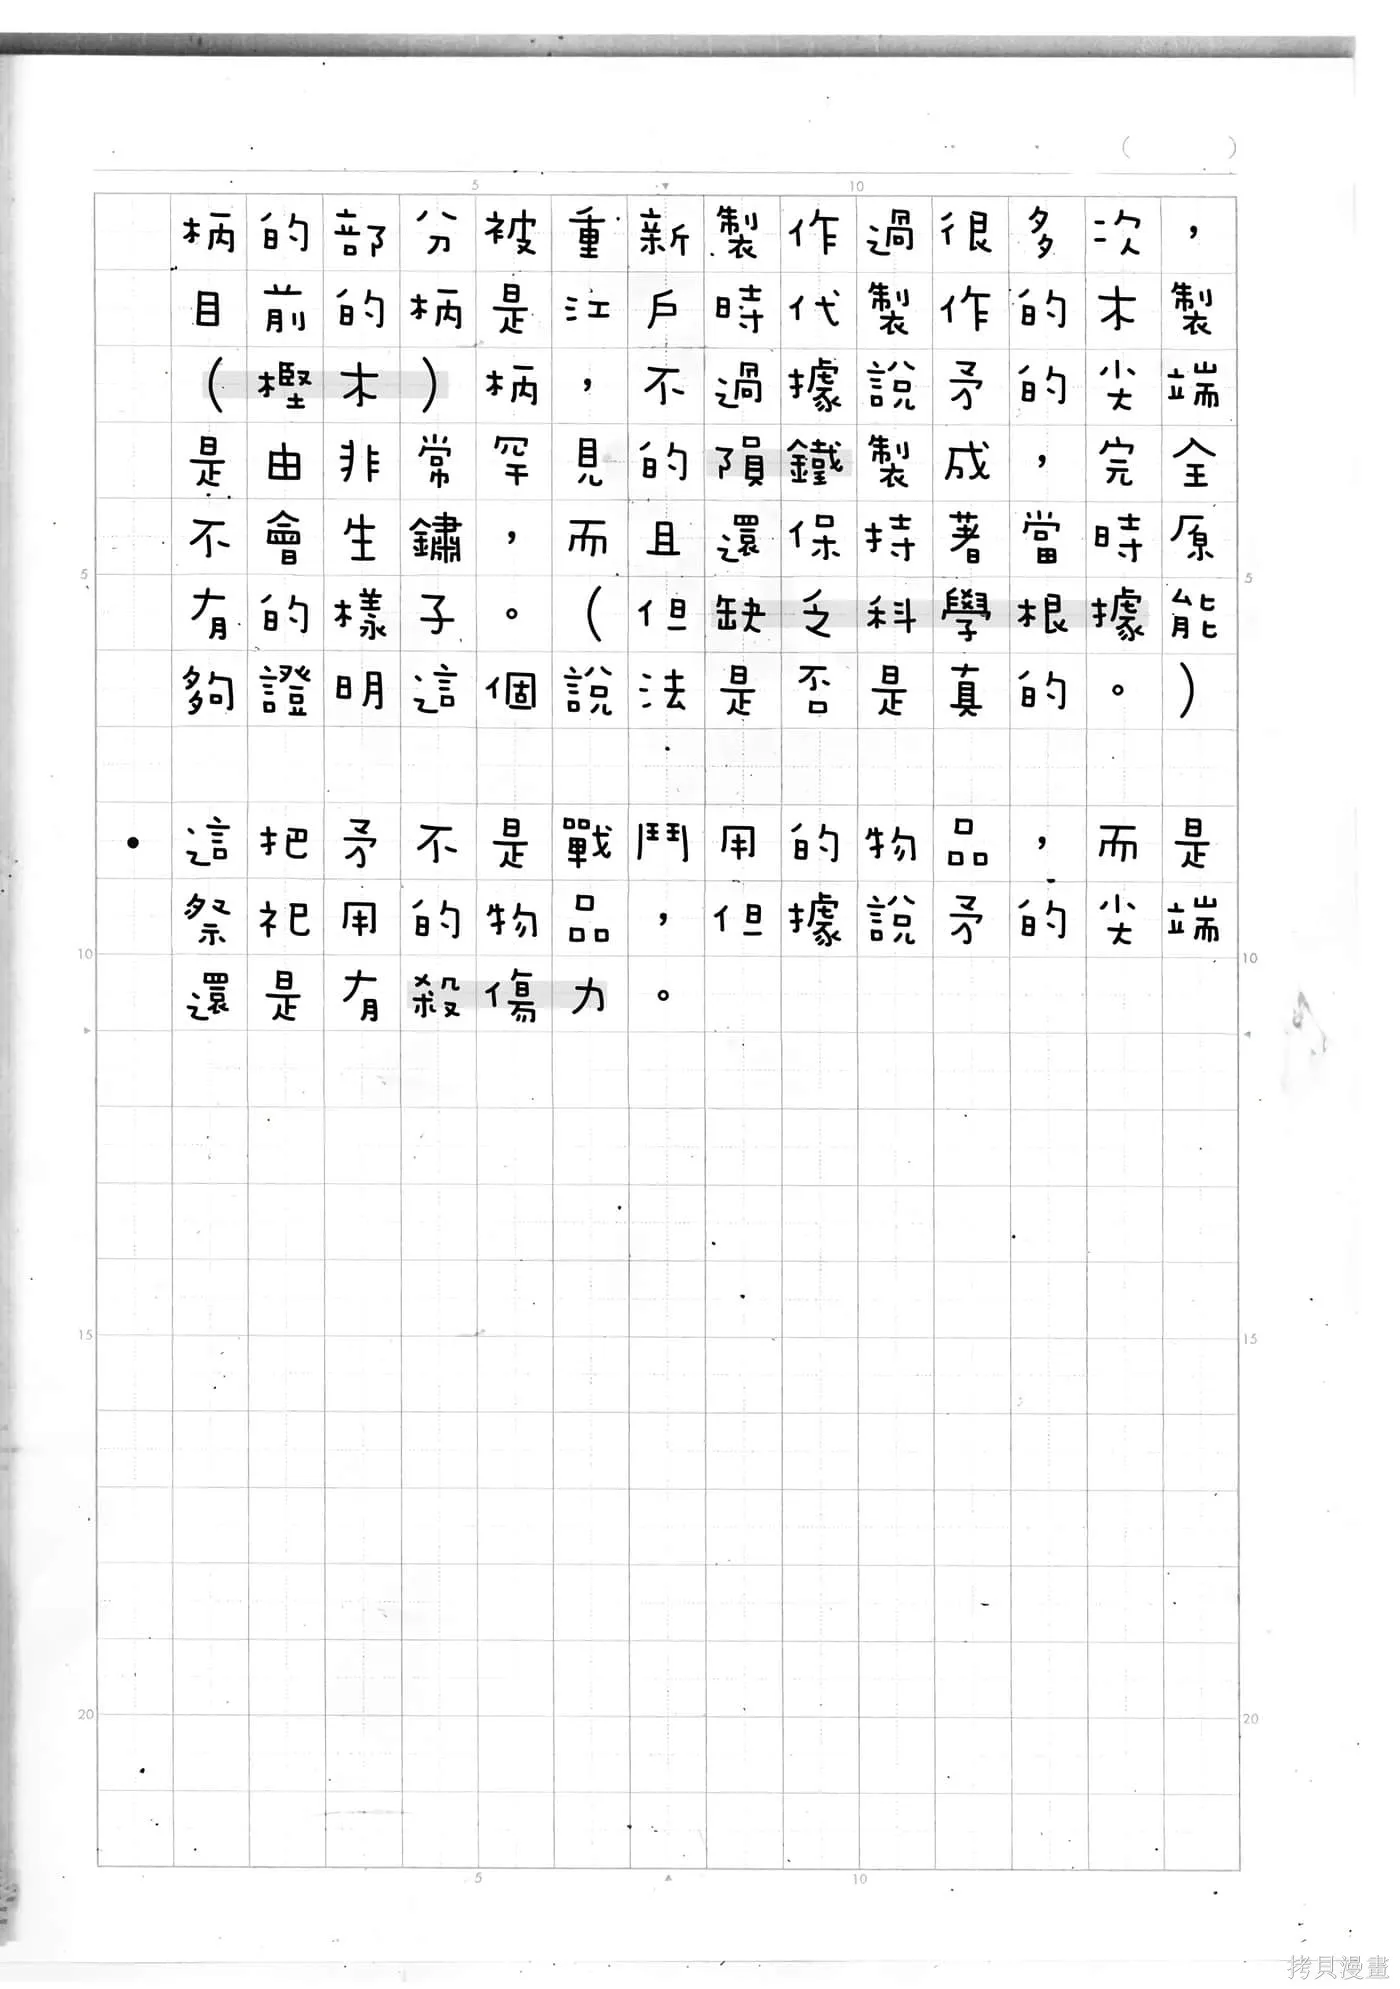 ( )
5 10
柄的部分被重新製作過很多次，
目前的柄是江戶時代製作的木製
(樫木)柄，不過據說矛的尖端
是由非常罕見的隕鐵製成，完全
不會生鏽，而且還保持著當時原
5 5
有的樣子。(但缺乏科學根據能
夠證明這個說法是否是真的。)
• 這把矛不是戰鬥用的物品，而是
祭祀用的物品，但據說矛的尖端
10 10
還是有殺傷力。
15 15
20 20
5 10
拷貝漫畫